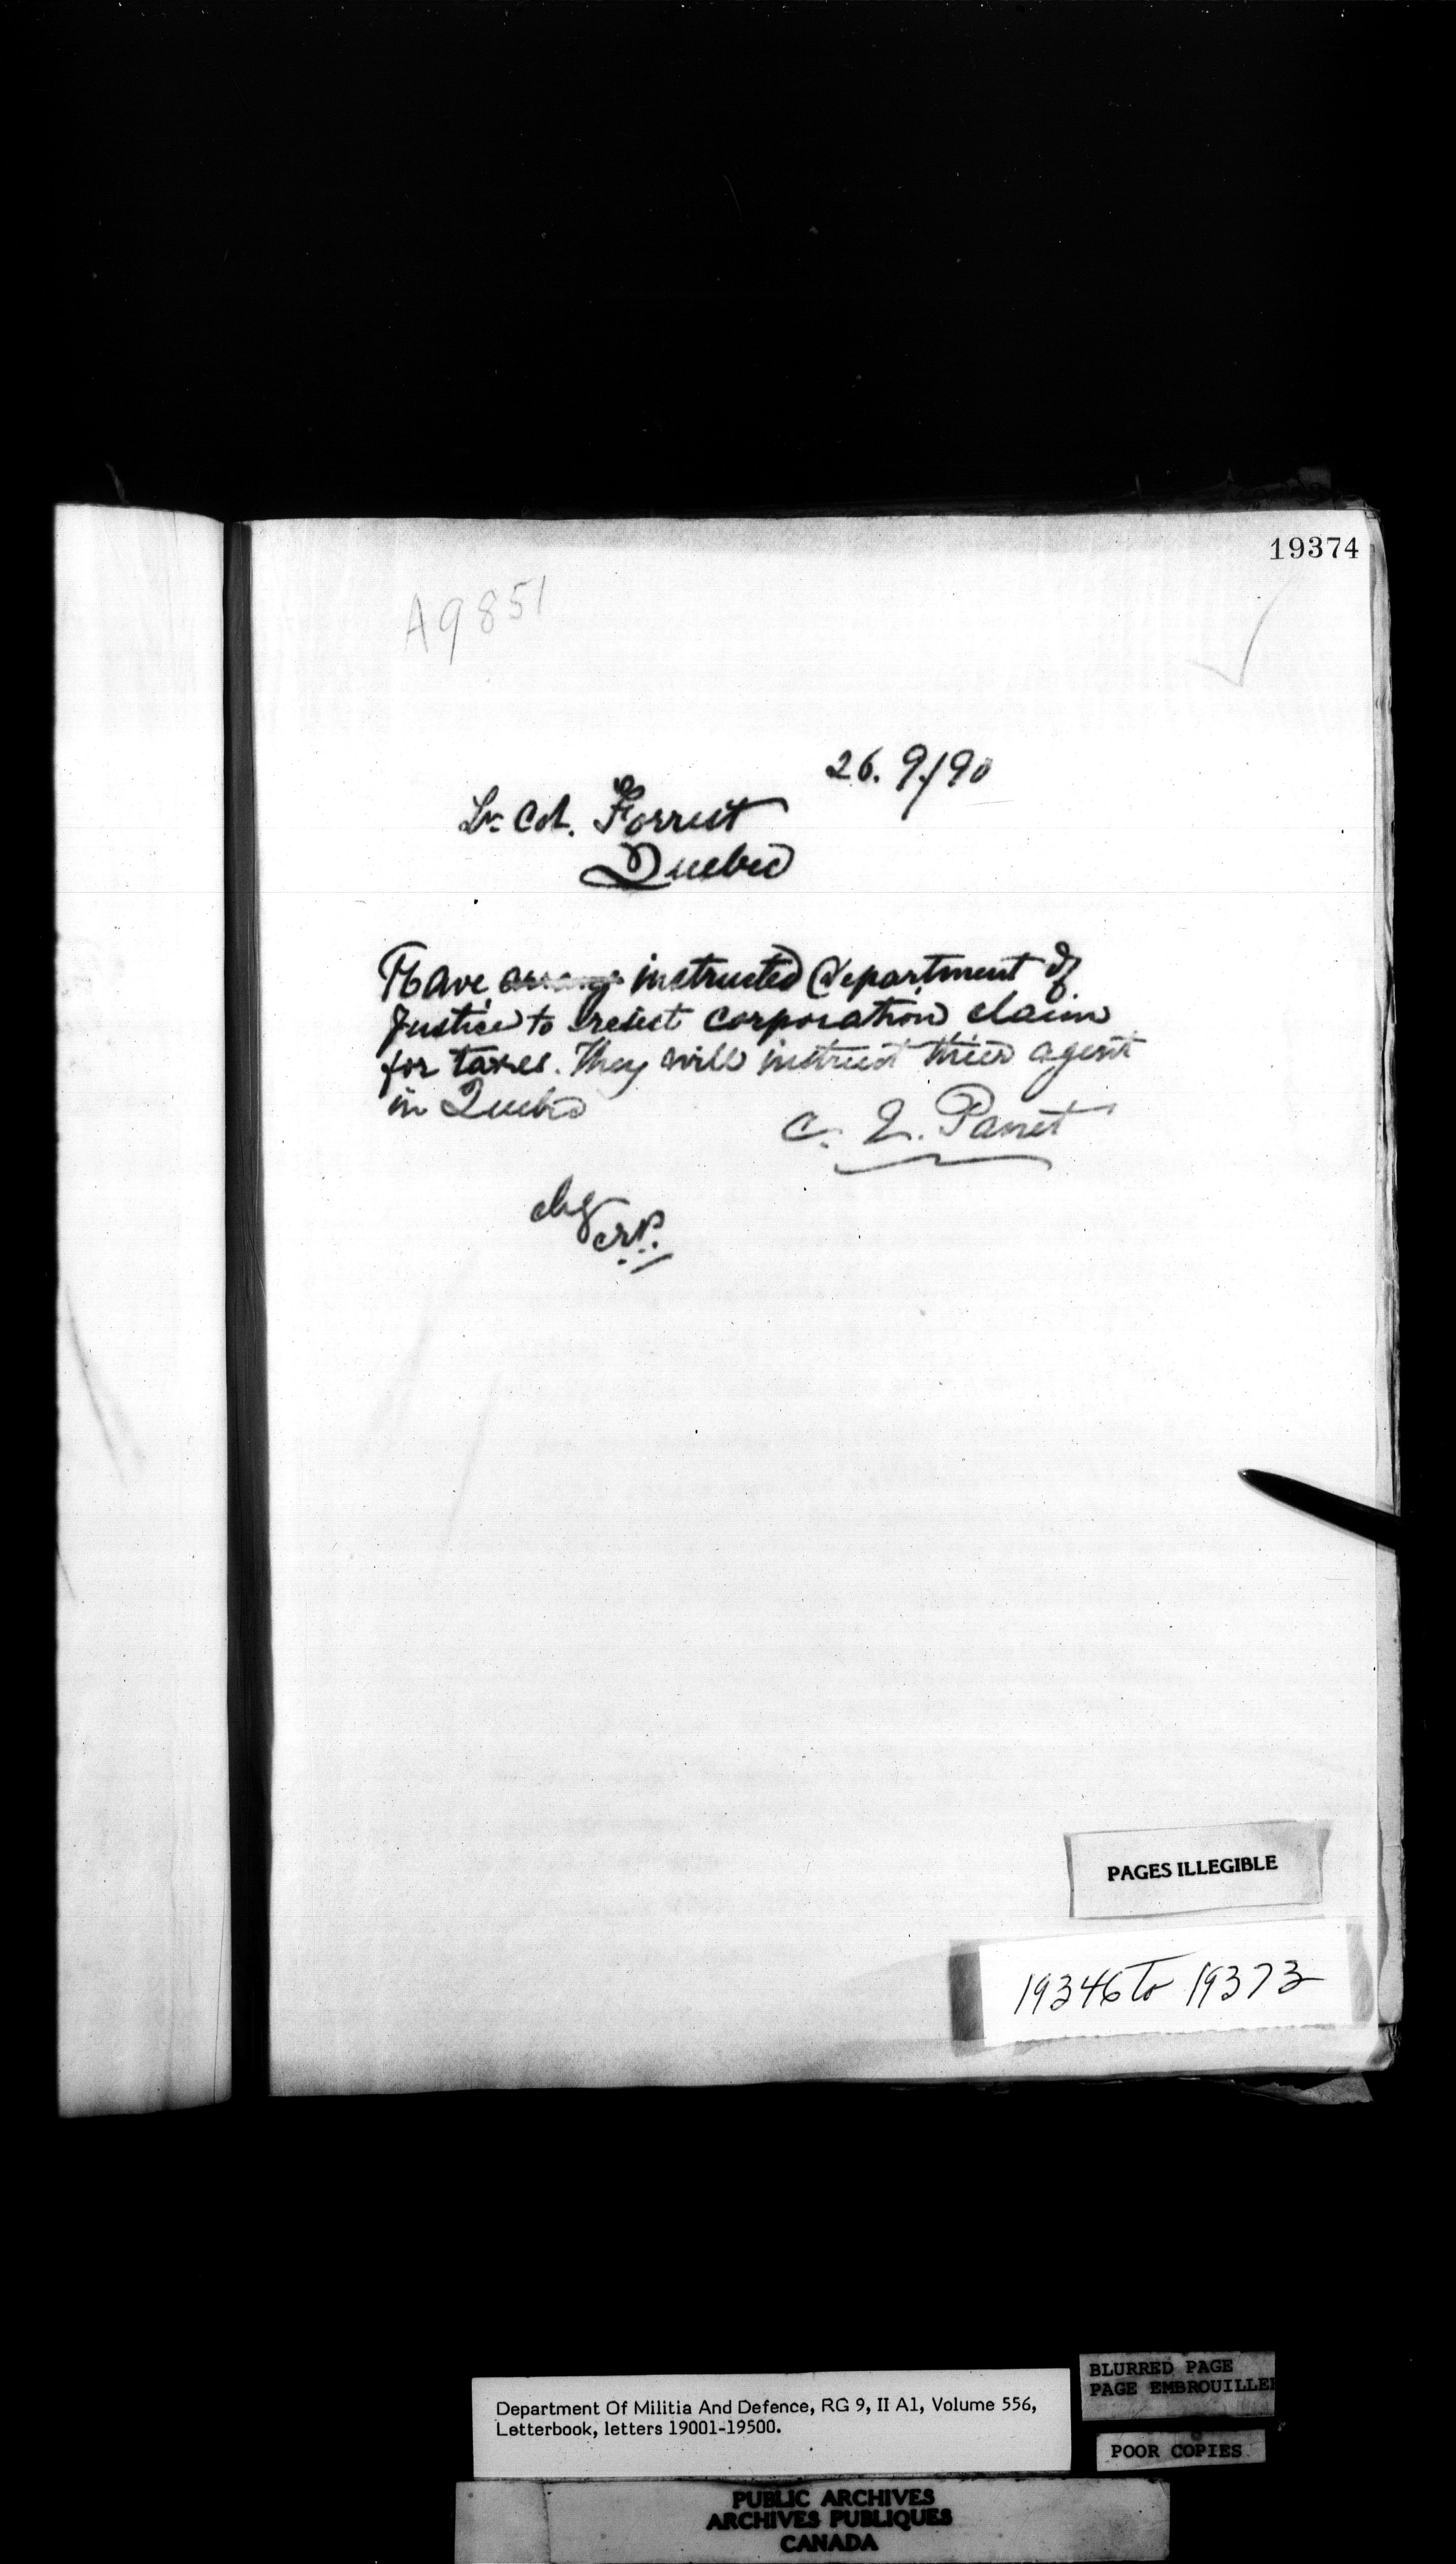 19374
A9851
26. 9/90
Lt Col. Forrest
Quebec
Have instructed Department of
Justice to resist corporation claim
for taxes. They will instruct their agent
in Quebec
C. E. Panet
chg
PAGES ILLEGIBLE
19346 to 19373
BLURRED PAGE
PAGE EMBROUILLEE
Department Of Militia And Defence, RG 9, II A1, Volume 556,
Letterbook, letters 19001-19500.
POOR COPIES
PUBLIC ARCHIVES
ARCHIVES PUBLIQUES
CANADA